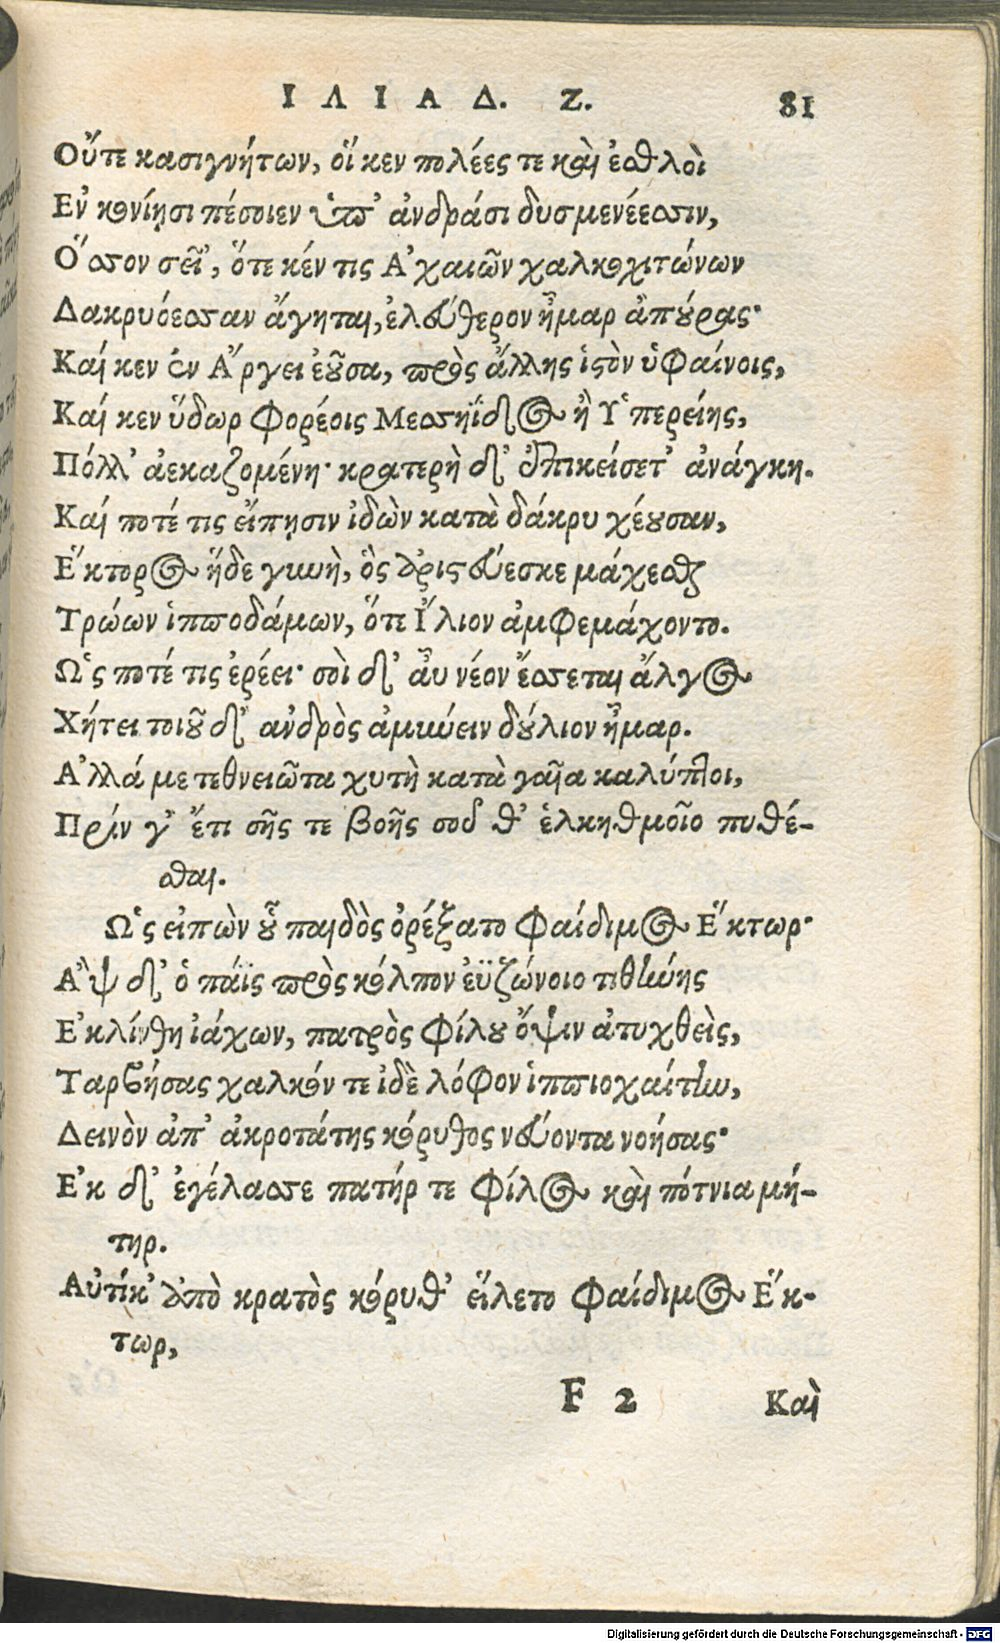 ΙΛΙΑΔ. Ζ. 81
Οὔτε κασιγνήτων, οἵ κεν πολέες τε καὶ ἐσθλοὶ
Εν κονίῃσι πέσοιεν ὑπ' ἀνδράσι δυσμενέεσσιν,
Ὅσσον σεῖ', ὅτε κέν τις Ἀχαιῶν χαλκοχιτώνων
Δακρυόεσσαν ἄγηται, ἐλεύθερον ἦμαρ ἀπούρας·
Καί κεν ἐν Ἄργει ἐοῦσα, πρὸς ἄλλης ἱστὸν ὑφαίνοις,
Καί κεν ὕδωρ φορέοις Μεσσηΐδος ἢ Ὑπερείης,
Πόλλ' ἀεκαζομένη· κρατερὴ δ' ἐπικείσετ' ἀνάγκη.
Καί ποτέ τις εἴπῃσιν ἰδὼν κατὰ δάκρυ χέουσαν,
Ἕκτορος ἥδε γυνὴ, ὃς ἀριστεύεσκε μάχεσθαι
Τρώων ἱπποδάμων, ὅτι Ἴλιον ἀμφεμάχοντο.
Ὥς ποτέ τις ἐρέει· σοὶ δ' ἂυ νέον ἔσσεται ἄλγος
Χήτει τοιοῦδ' ἀνδρὸς ἀμυνειν δούλιον ἦμαρ.
Ἀλλά με τεθνειῶτα χυτὴ κατὰ γαῖα καλύπτοι,
Πρίν γ' ἔτι σῆς τε βοῆς σοῦ θ' ἑλκηθμοῖο πυθέ-
σθαι.
Ὣς εἰπὼν οὗ παιδὸς ὀρέξατο φαίδιμος Ἕκτωρ·
Ἂψ δ' ὁ πάϊς πρὸς κόλπον ἐϋζώνοιο τιθήνης
Ἐκλίνθη ἰάχων, πατρὸς φίλου ὄψιν ἀτυχθεὶς,
Ταρβήσας χαλκόν τε ἰδὲ λόφον ἱππιοχαίτην,
Δεινὸν ἀπ' ἀκροτάτης κόρυθος νεύοντα νοήσας·
Ἐκ δ' ἐγέλασσε πατήρ τε φίλος καὶ πότνια μή-
τηρ.
Αὐτίκ' ἀπὸ κρατὸς κόρυθ' εἵλετο φαίδιμος Ἕκ-
τωρ,
F 2 Καὶ
Digitalisierung gefördert durch die Deutsche Forschungsgemeinschaft - DFG